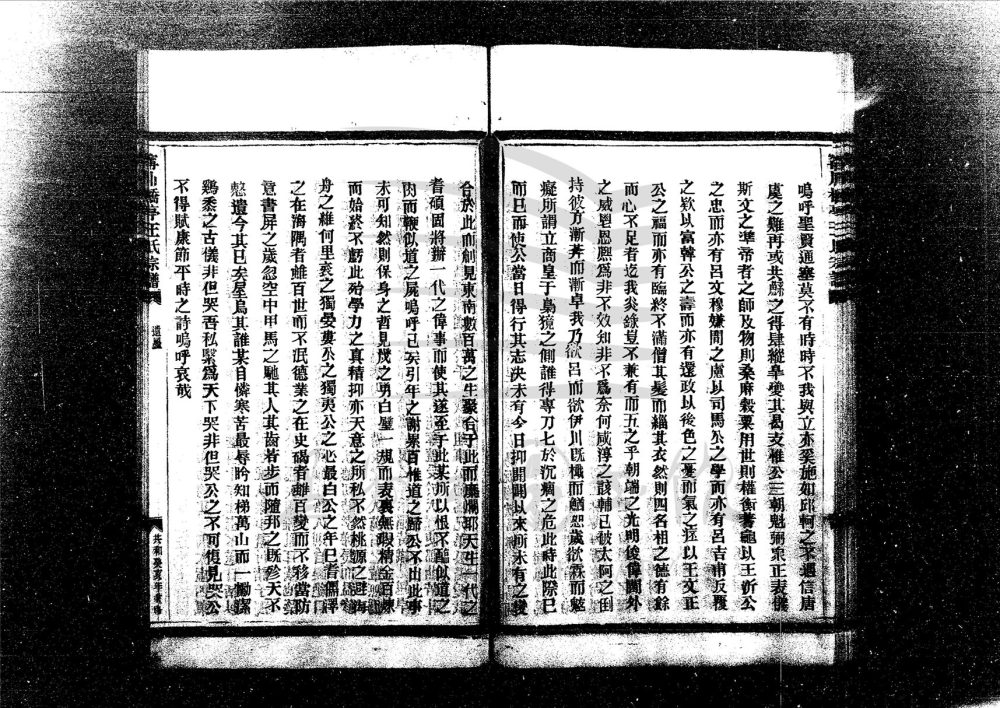 嗚呼聖賢通塞莫不有時時不我與立亦奚施如邱軻之不遇信唐
虞之難再或共縣之得肆縱皐夔其曷支惟公三朝魁弼衆正表儀
斯文之準帝者之師及物則桑麻穀粟用世則權衡蓍龜以王沂公
之忠而亦有呂文穆嫌間之慮以司馬公之學而亦有呂吉甫反覆
之欵以富韓公之壽而亦有還政以後色之憂而氣之溼以王文正
公之福而亦有臨終不滿僧其髮而緇其衣然則四名相之德有餘
而心不足者迄我炎錄豈不兼有而五之乎朝端之光明俊偉閫外
之威望恩熙爲非不效知非不爲奈何咸淳之誤輔已彼太阿之倒
持彼方漸莽而漸卓我乃欲呂而欲伊川旣檝而鰌怨歲欲霖而魃
癡所謂立商皇于梟獍之側誰得專刀七於沉痼之危此時此際已
而已而使公當日得行其志決未有今日抑開闢以來所未有之變
合於此而創見東南數百萬之生聚合乎此而糜爛耶天生一代之
者碩固將辦一代之偉事而使其遂至于此某所以恨不醢似道之
肉而鞭似道之屍嗚呼已矣引年之謝衆百惟道之歸公不出此事
未可知然則保身之哲見幾之勇白璧一規而表裏無瑕精金百煉
而始終不虧此殆學力之眞精抑亦天意之所私不然桃源之避海
舟之維何里袞之獨晏婁公之獨夷公之心最白公之年已耆儒譯
之在海隅者雖百世而不泯德業之在史碣者雖百變而不移當防
意書屏之歲忽空中甲馬之馳其人其齒若步而隨邦之旣殄天不
憖遺今其已矣屋烏其誰某自憐寒苦最辱昑知梯萬山而一慟潔
鷄黍之古儀非但哭吾私繄爲天下哭非但哭公之不可復見哭公
不得賦康節平時之詩嗚呼哀哉
王氏宗譜
共和癸亥年